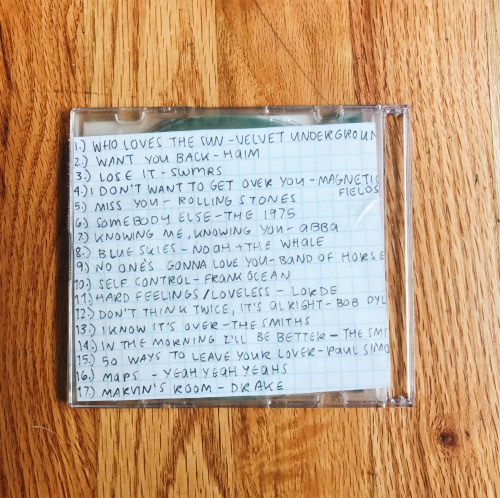 1.) WHO LOVES THE SUN - VELVET UNDERGROUN
2.) WANT YOU BACK - HAIM
3.) LOSE IT - SWMRS
4.) I DON'T WANT TO GET OVER YOU - MAGNETIC
FIELDS
5.) MISS YOU - ROLLING STONES
6.) SOMEBODY ELSE - THE 1975
7.) KNOWING ME, KNOWING YOU - ABBA
8.) BLUE SKIES - NOAH + THE WHALE
9.) NO ONE'S GONNA LOVE YOU - BAND OF HORSE
10.) SELF CONTROL - FRANK OCEAN
11.) HARD FEELINGS / LOVELESS - LORDE
12.) DON'T THINK TWICE, IT'S ALRIGHT - BOB DYL
13.) I KNOW IT'S OVER - THE SMITHS
14.) IN THE MORNING I'LL BE BETTER - THE SMI
15.) 50 WAYS TO LEAVE YOUR LOVER - PAUL SIMO
16.) MAPS - YEAH YEAH YEAHS
17.) MARVIN'S ROOM - DRAKE